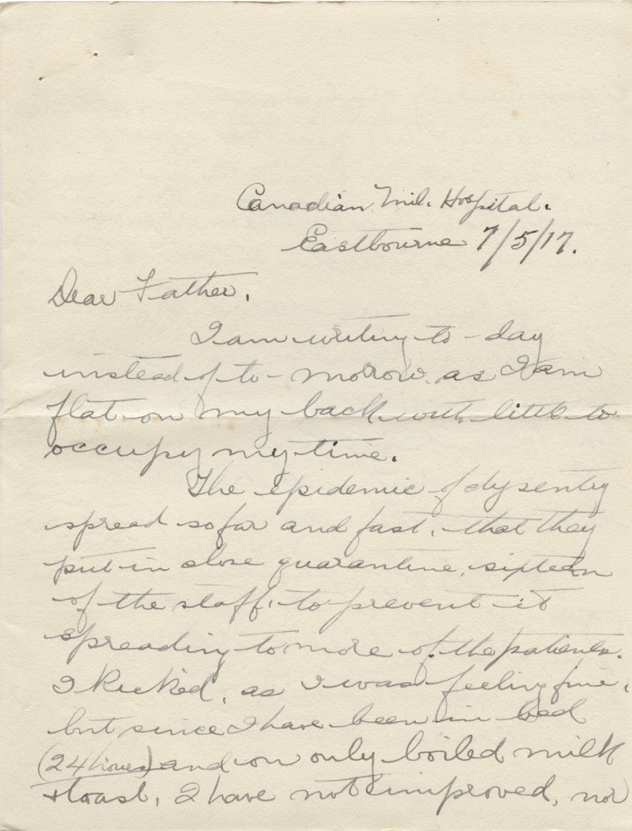 Canadian Mil. Hospital.
Eastbourne 7/5/17.
Dear Father,
I am writing to-day
instead of to-morow, as I am
flat on my back with little to
occupy my time.
The epidemic of dysentry
spread so far and fast, that they
put in close quarantine, sixteen
of the staff, to prevent it
spreading to more of the patients.
I kicked, as I was feeling fine,
but since I have been in bed
(24 hours) and on only boiled milk
& toast, I have not improved, nor